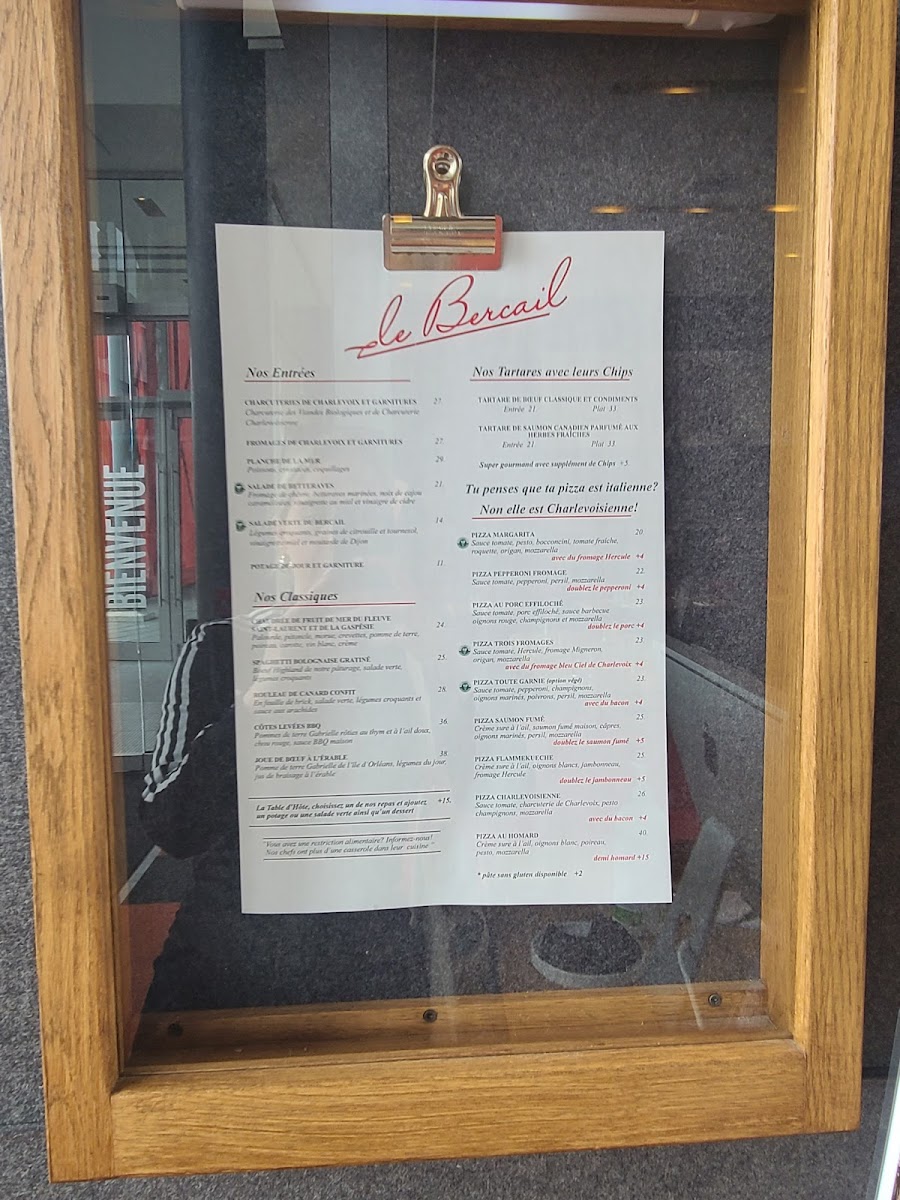 le Bercail
Nos Entrées
CHARCUTERIES DE CHARLEVOIX ET GARNITURES 27.
Charcuterie des Viandes Biologiques et de Charcuterie
Charlevoisienne
FROMAGES DE CHARLEVOIX ET GARNITURES 27.
PLANCHE DE LA MER 29.
Poissons, crustacés, coquillages
SALADE DE BETTERAVES 21.
Fromage de chèvre, betteraves marinées, noix de cajou
caramélisées, vinaigrette au miel et vinaigre de cidre
SALADE VERTE DU BERCAIL 14.
Légumes croquants, graines de citrouille et tournesol,
vinaigrette miel et moutarde de Dijon
POTAGE DU JOUR ET GARNITURE 11.
Nos Classiques
CHAUDRÉE DE FRUIT DE MER DU FLEUVE
SAINT-LAURENT ET DE LA GASPÉSIE 24.
Palourde, pétoncle, morue, crevettes, pomme de terre,
poireau, carotte, vin blanc, crème
SPAGHETTI BOLOGNAISE GRATINÉ 25.
Boeuf Highland de notre pâturage, salade verte,
légumes croquants
ROULEAU DE CANARD CONFIT 28.
En feuille de brick, salade verte, légumes croquants et
sauce aux arachides
CÔTES LEVÉES BBQ 36.
Pommes de terre Gabrielle rôties au thym et à l'ail doux,
chou rouge, sauce BBQ maison
JOUE DE BŒUF À L'ÉRABLE 38.
Pomme de terre Gabrielle de l'île d'Orléans, légumes du jour,
jus de braisage à l'érable
La Table d'Hôte, choisissez un de nos repas et ajoutez +15.
un potage ou une salade verte ainsi qu'un dessert
"Vous avez une restriction alimentaire? Informez-nous!
Nos chefs ont plus d'une casserole dans leur cuisine"
Nos Tartares avec leurs Chips
TARTARE DE BŒUF CLASSIQUE ET CONDIMENTS
Entrée 21 Plat 33
TARTARE DE SAUMON CANADIEN PARFUMÉ AUX
HERBES FRAÎCHES
Entrée 21 Plat 33
Super gourmand avec supplément de Chips +5
Tu penses que ta pizza est italienne?
Non elle est Charlevoisienne!
PIZZA MARGARITA 20.
Sauce tomate, pesto, bocconcini, tomate fraîche,
roquette, origan, mozzarella
avec du fromage Hercule +4
PIZZA PEPPERONI FROMAGE 22.
Sauce tomate, pepperoni, persil, mozzarella
doublez le pepperoni +4
PIZZA AU PORC EFFILOCHÉ 23
Sauce tomate, porc effiloché, sauce barbecue
oignons rouge, champignons et mozzarella
doublez le porc +4
PIZZA TROIS FROMAGES 23.
Sauce tomate, Hercule, fromage Migneron,
origan, mozzarella
avec du fromage bleu Ciel de Charlevoix +4
PIZZA TOUTE GARNIE (option végé) 23.
Sauce tomate, pepperoni, champignons,
oignons marinés, poivrons, persil, mozzarella
avec du bacon +4
PIZZA SAUMON FUMÉ 25.
Crème sure à l'ail, saumon fumé maison, câpres,
oignons marinés, persil, mozzarella
doublez le saumon fumé +5
PIZZA FLAMMEKUECHE 25.
Crème sure à l'ail, oignons blancs, jambonneau,
fromage Hercule
doublez le jambonneau +5
PIZZA CHARLEVOISIENNE 26.
Sauce tomate, charcuterie de Charlevoix, pesto
champignons, mozzarella
avec du bacon +4
PIZZA AU HOMARD 40.
Crème sure à l'ail, oignons blanc, poireau,
pesto, mozzarella
demi homard +15
* pâte sans gluten disponible +2
BIENVENUE